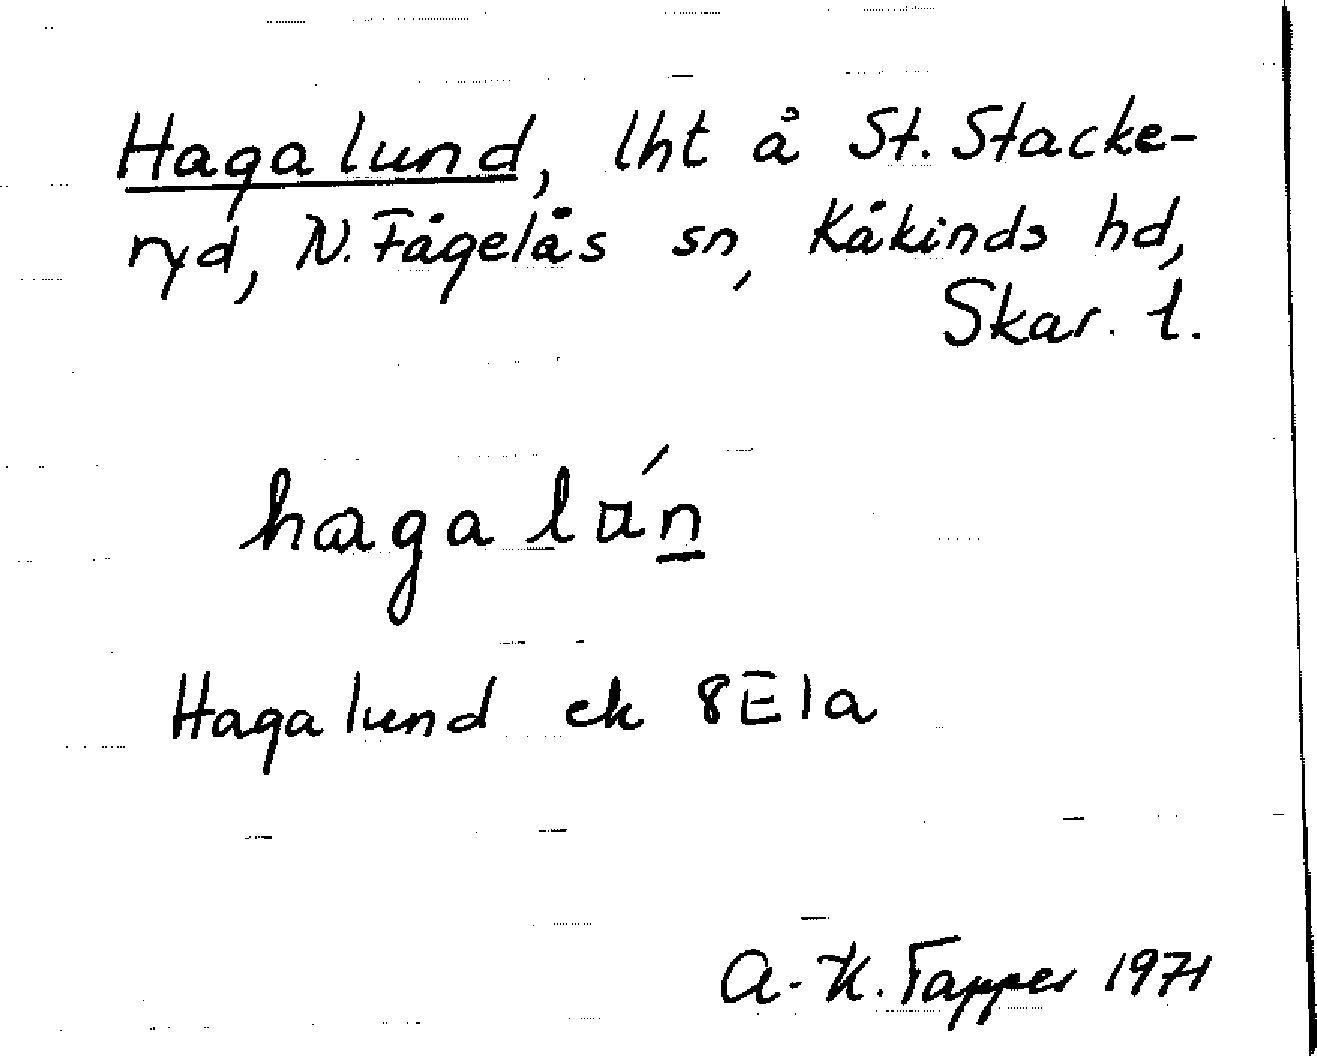 Hagalund, lht å St. Stacke-
ryd, N. Fågelås sn, Kåkinds hd,
Skar. l.
hagalún
Hagalund ek 8E1a
A-K. Tapper 1971